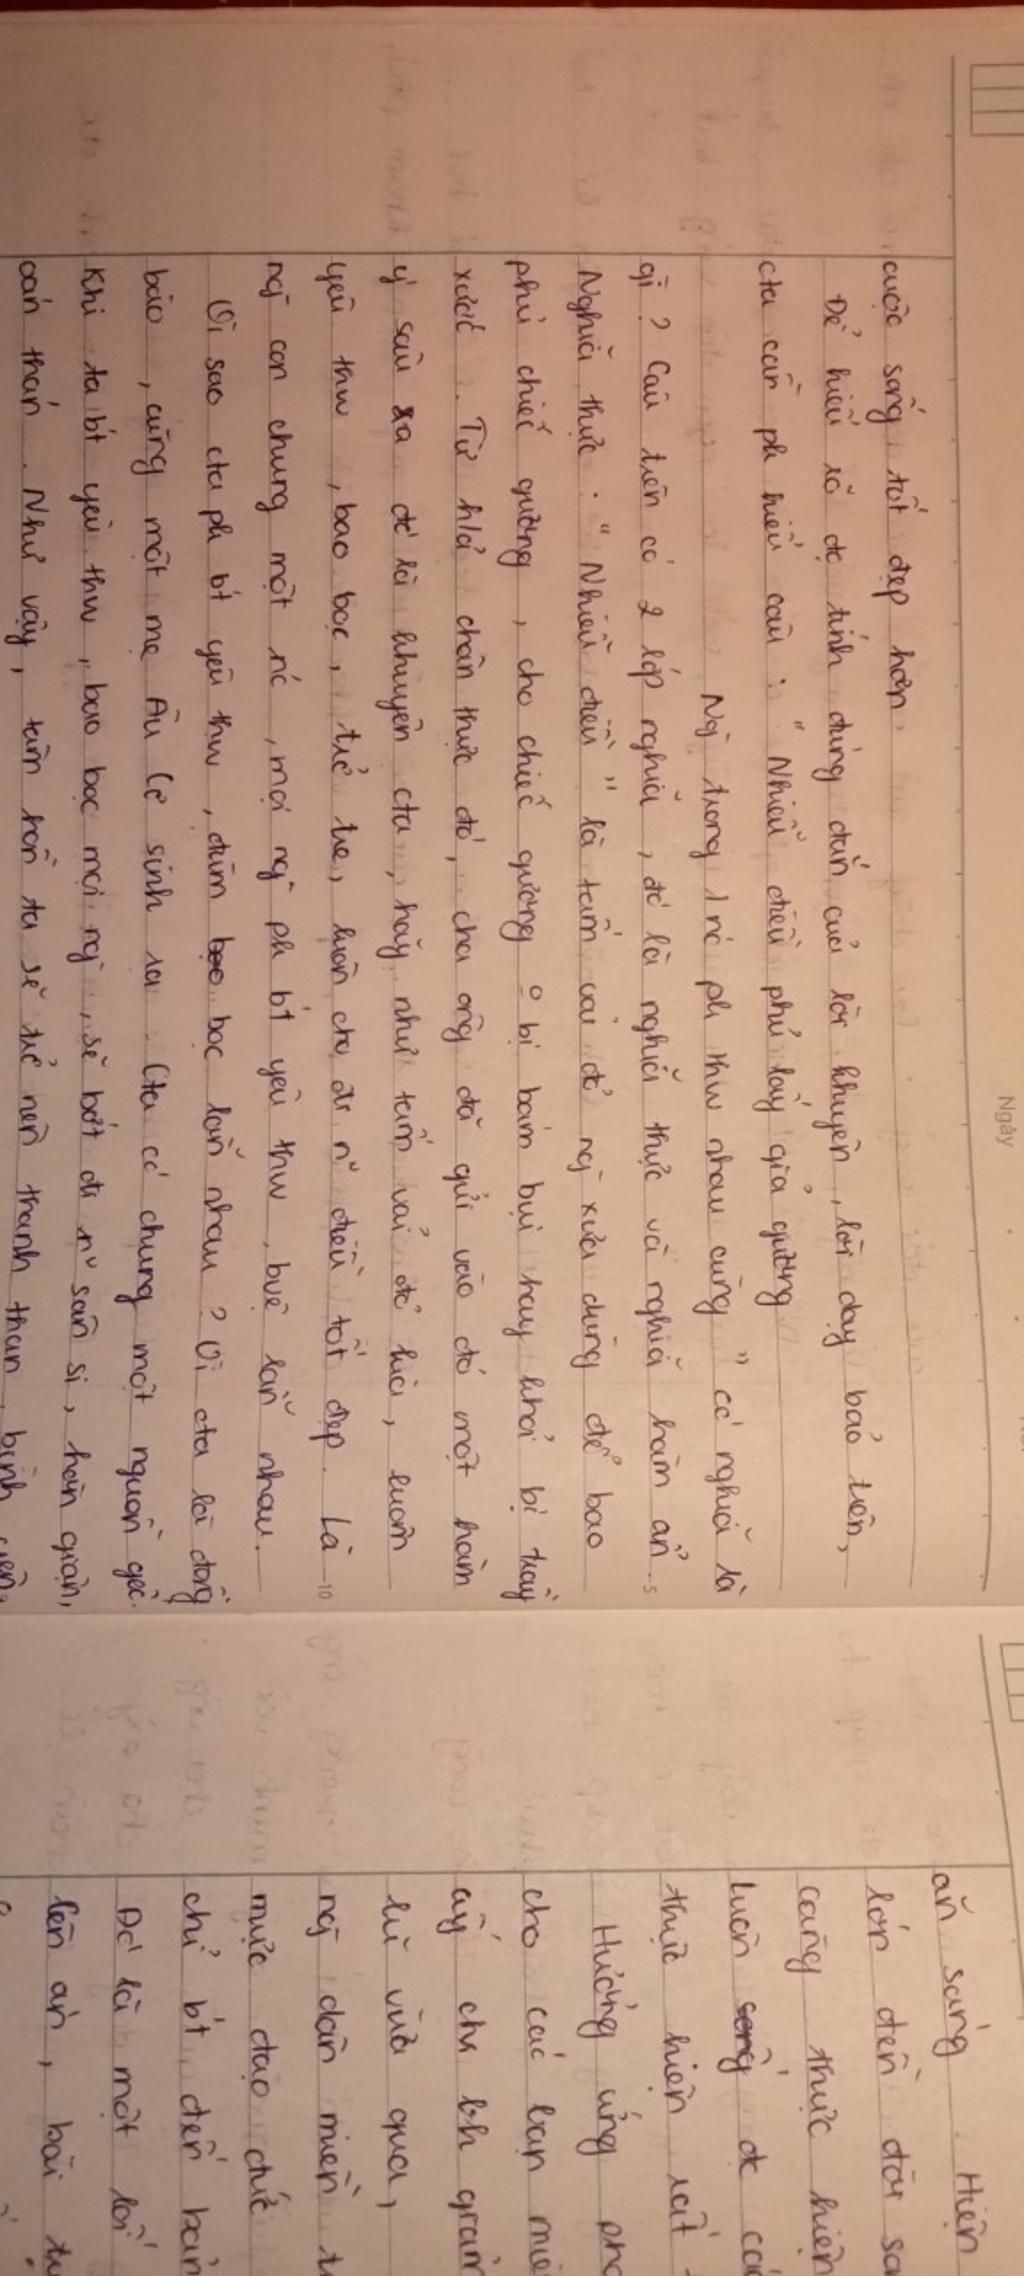 Ngày
cuộc sống tốt đẹp hơn.
Để hiểu rõ đc tính đúng đắn của lời khuyên, lời dạy bảo trên,
cta cần ph hiểu câu : " Nhiễu điều phủ lấy giá gương
Ng trong 1 nc ph thw nhau cùng " có nghĩa là
gì ? Câu trên có 2 lớp nghĩa, đó là nghĩa thực và nghĩa hàm ẩn.
5
Nghĩa thực : " Nhiễu điều " là tấm vải đỏ ng xưa dùng để bao
phủ chiếc gương, cho chiếc gương o bị bám bụi hay khỏi bị trầy
xước. Từ h/ả chân thực đó, cha ông đã gửi vào đó một hàm
ý sâu xa đó là khuyên cta, hãy như tấm vải đỏ kia, luôn
yêu thw, bao bọc, trở tre, luôn cho đi n~ điều tốt đẹp. Là
10
ng con chung một nc, mọi ng ph bt yêu thw, buệ lẫn nhau.
Vì sao cta ph bt yêu thw, đùm bọc lẫn nhau ? Vì cta là đồng
bào, cùng một mẹ Âu Cơ sinh ra. Cta có chung một nguồn gốc.
Khi ta bt yêu thw, bao bọc mọi ng, sẽ bớt đi n~ sân si, hờn giận,
oán thán. Như vậy, tâm hồn ta sẽ trở nên thanh thản, bình yên,
ăn sáng. Hiện
lớn đến đời
càng thực hiện
luôn sống đc
thực hiện rất
Hưởng ứng
cho các bạn
ấy chi kh
lũ vừa qua,
ng dân miền
mực đạo đức
chỉ bt đến bản
Đó là một lối
lên án, bài